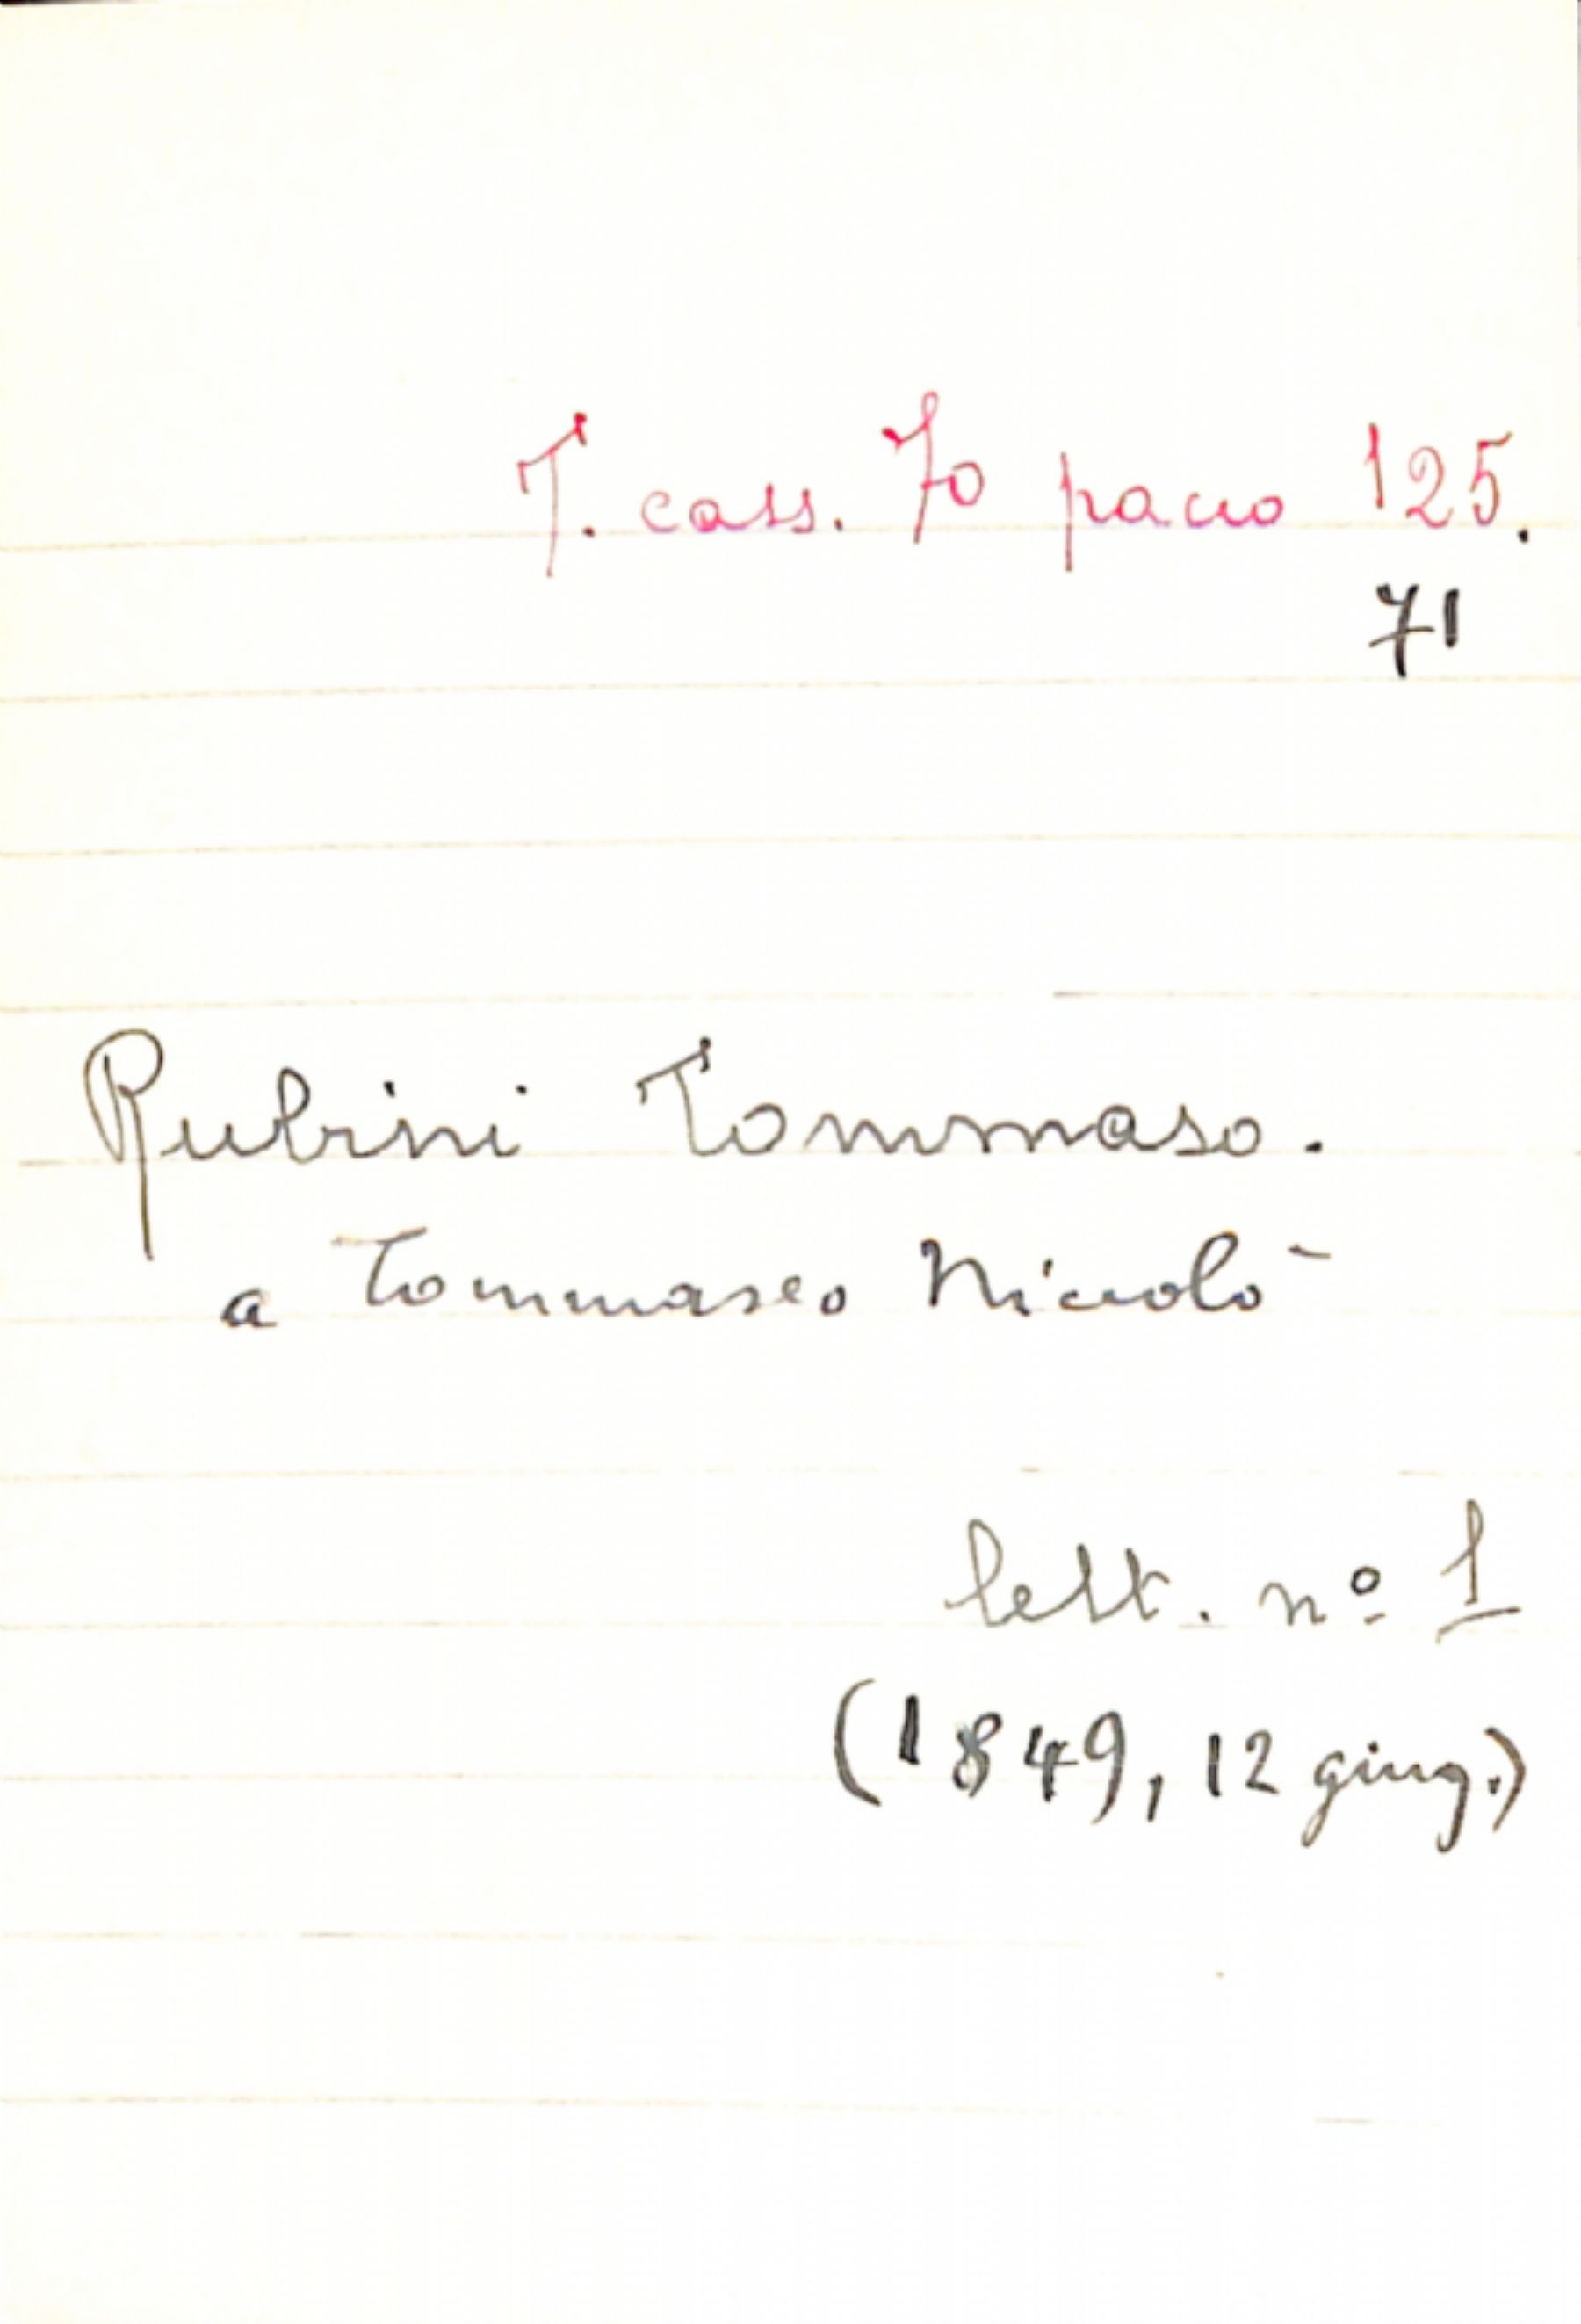 T. cass. 70 pacco 125.
71
Rubini Tommaso.
a Tommaseo Niccolò
lett. nº 1
(1849, 12 giug.)